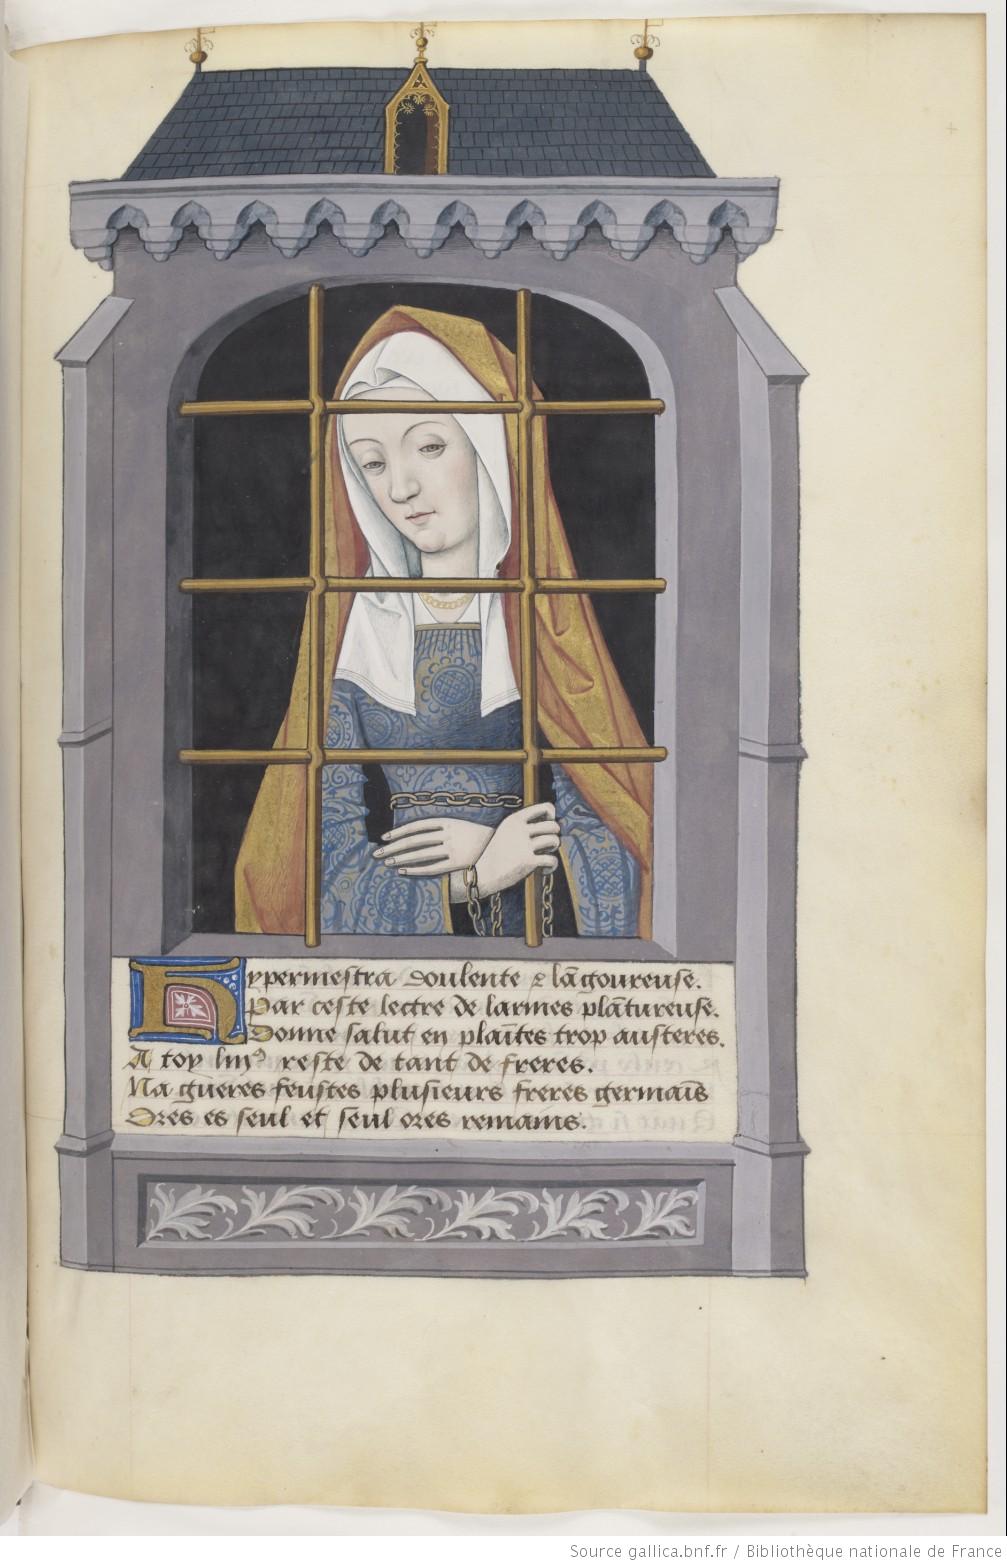 Hypermestra doulente & lãgoureuse.
Par ceste lectre de larmes plãtureuse.
Donne salut en plaītes trop austeres.
A toy linꝰ reste de tant de freres.
Na gueres feustes plusieurs freres germaīs
Ores es seul et seul ores remains.
Source gallica.bnf.fr / Bibliothèque nationale de France